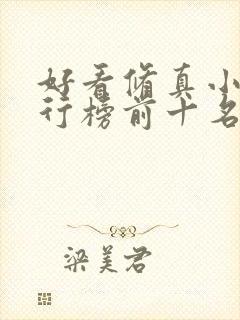 好看修真小
行榜前十名
梁美君